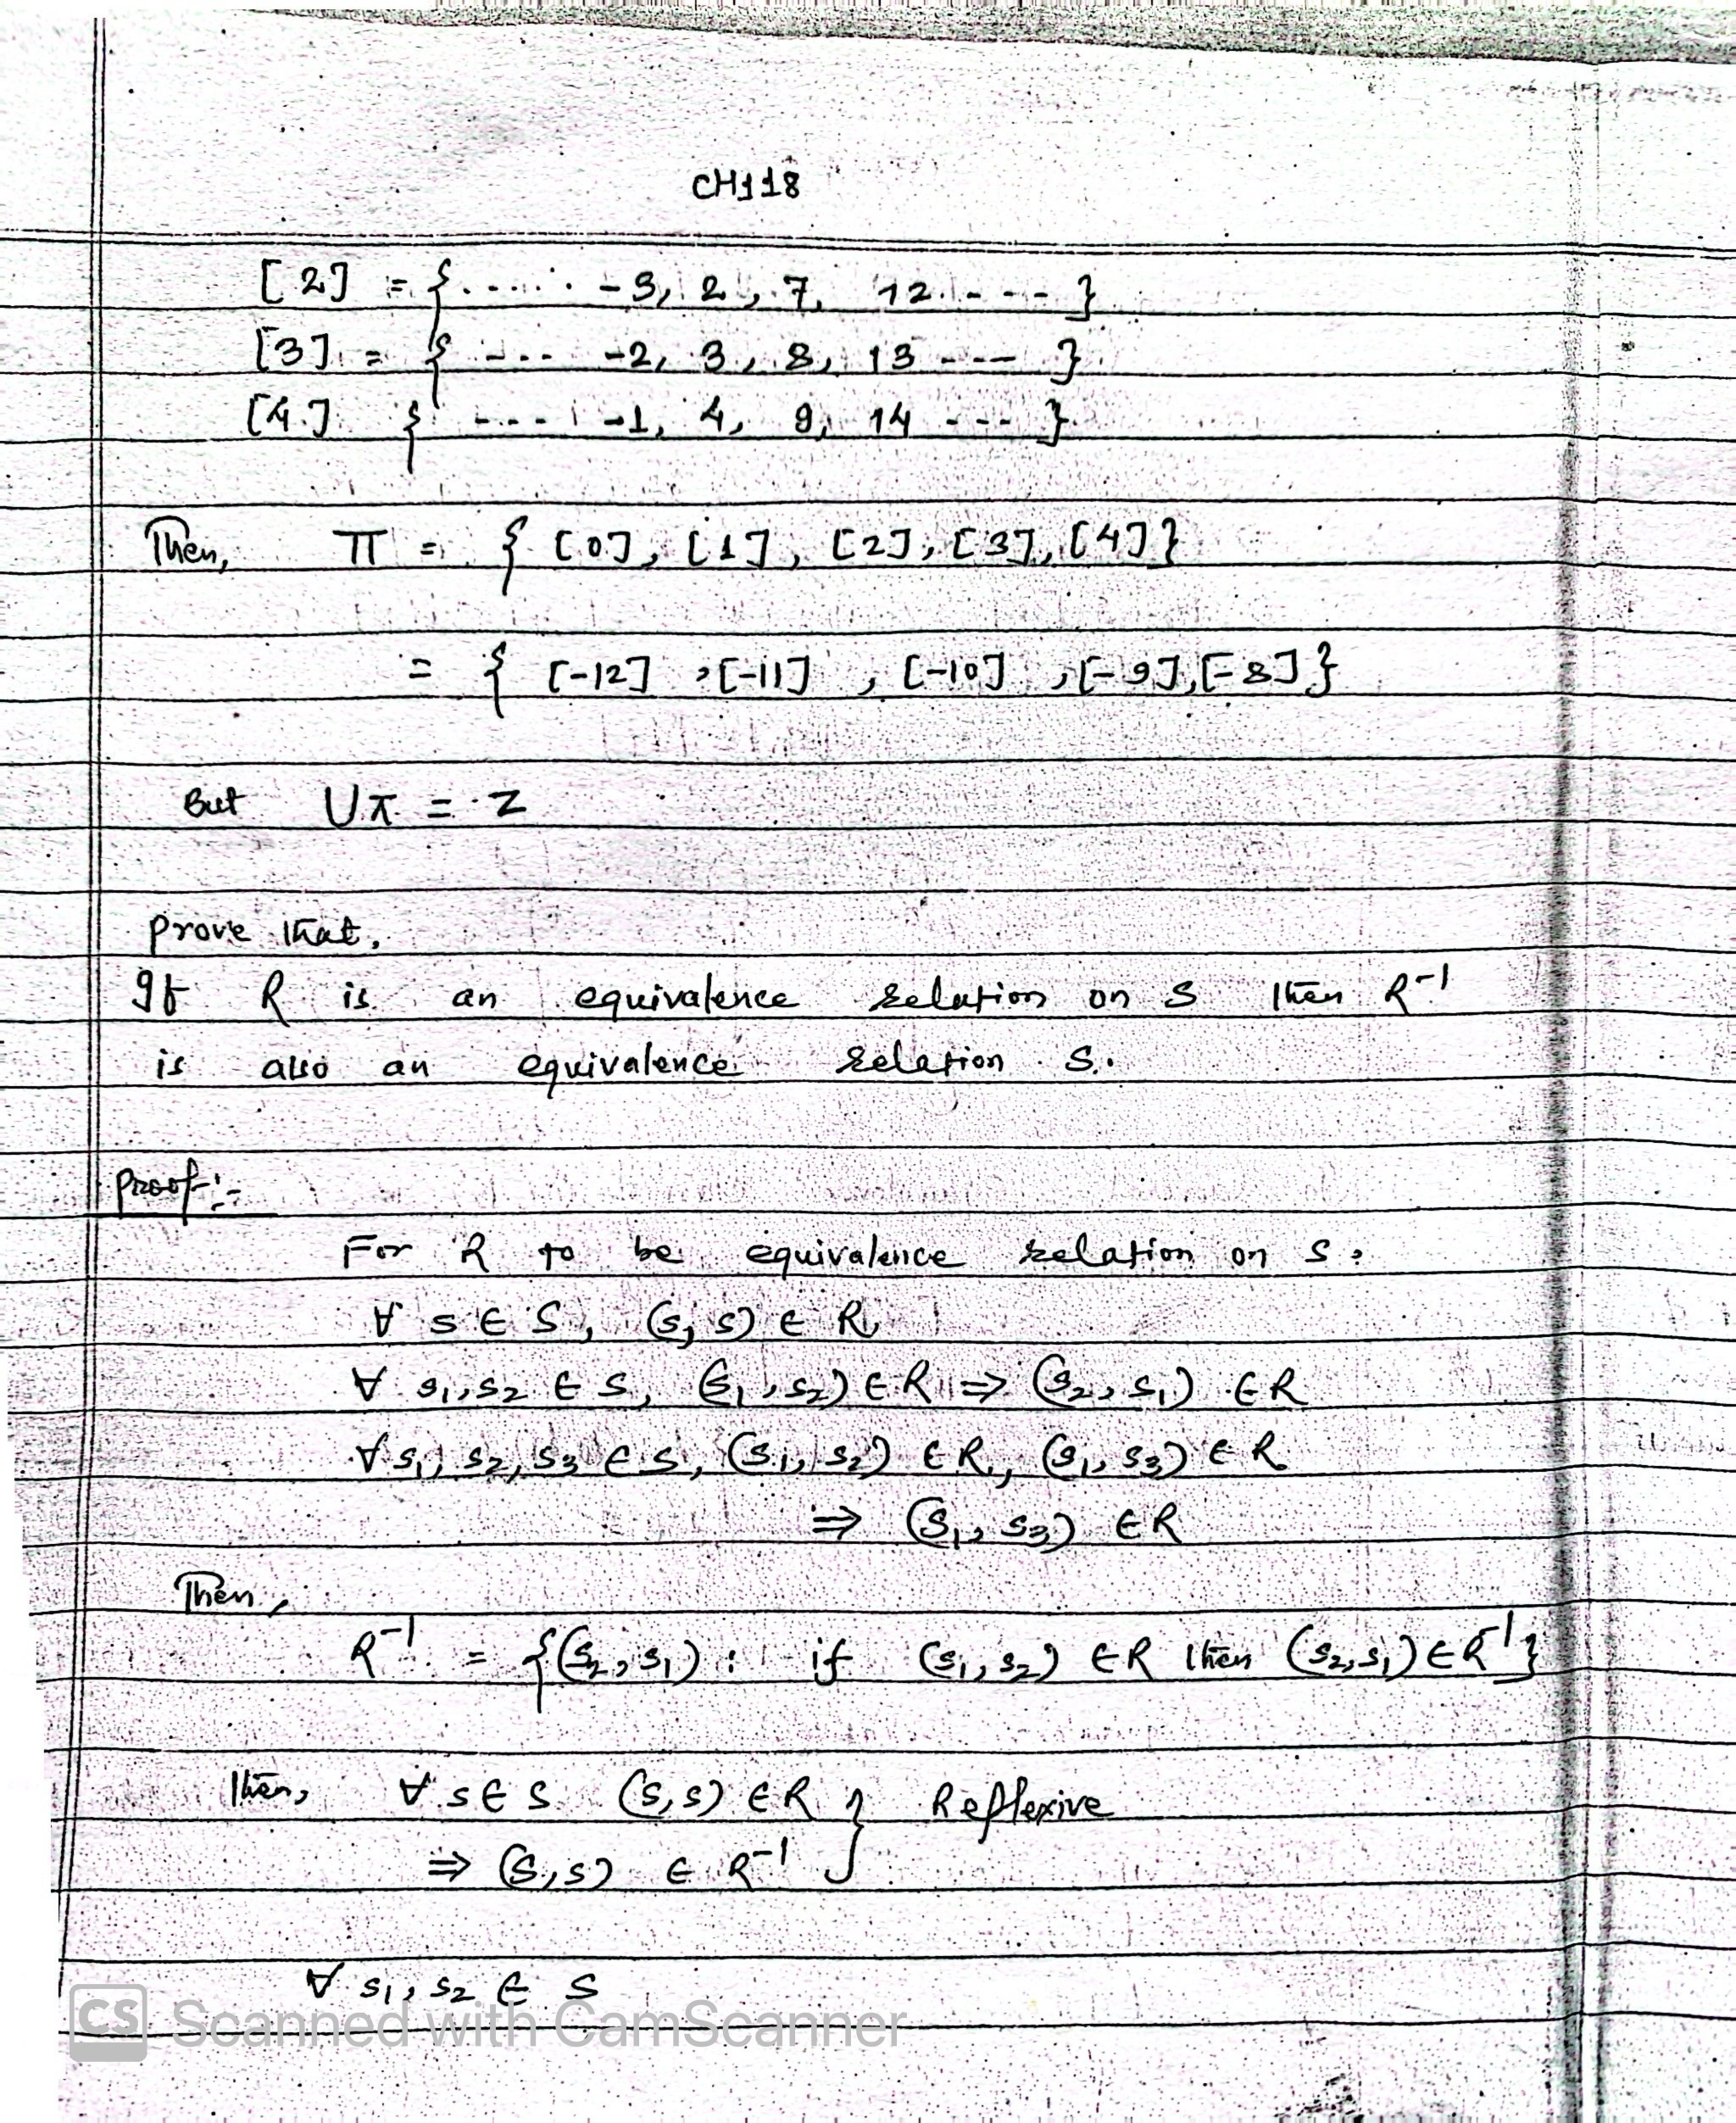 CH118
[2] = {...... -3, 2, 7, 12 - - - }
[3] = { - - - - -2, 3, 8, 13 - - - }
[4] { - - - - -1, 4, 9, 14 - - - }
Then, π = { [0], [1], [2], [3], [4] }
= { [-12], [-11], [-10], [-9], [-8] }
But ∪π = Z
Prove that,
If R is an equivalence relation on S then R⁻¹
is also an equivalence relation S.
Proof:-
For R to be equivalence relation on S:
∀ s ∈ S, (s, s) ∈ R
∀ s₁, s₂ ∈ S, (s₁, s₂) ∈ R ⇒ (s₂, s₁) ∈ R
∀ s₁, s₂, s₃ ∈ S, (s₁, s₂) ∈ R, (s₁, s₃) ∈ R
⇒ (s₁, s₃) ∈ R
Then,
R⁻¹ = {(s₂, s₁) : if (s₁, s₂) ∈ R then (s₂, s₁) ∈ R⁻¹}
then, ∀ s ∈ S (s, s) ∈ R } Reflexive
⇒ (s, s) ∈ R⁻¹
∀ s₁, s₂ ∈ S
CS Scanned with CamScanner